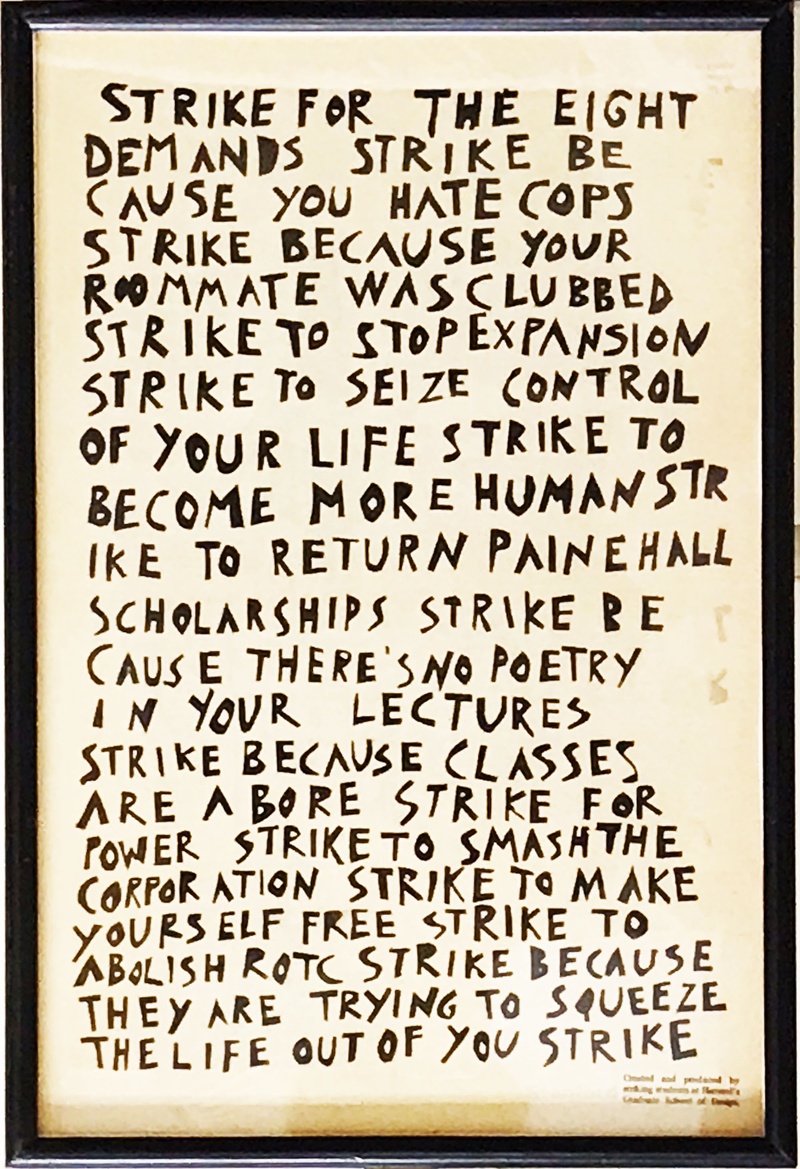 STRIKE FOR THE EIGHT
DEMANDS STRIKE BE
CAUSE YOU HATE COPS
STRIKE BECAUSE YOUR
ROOMMATE WAS CLUBBED
STRIKE TO STOP EXPANSION
STRIKE TO SEIZE CONTROL
OF YOUR LIFE STRIKE TO
BECOME MORE HUMAN STR
IKE TO RETURN PAINE HALL
SCHOLARSHIPS STRIKE BE
CAUSE THERE'S NO POETRY
IN YOUR LECTURES
STRIKE BECAUSE CLASSES
ARE A BORE STRIKE FOR
POWER STRIKE TO SMASH THE
CORPORATION STRIKE TO MAKE
YOURSELF FREE STRIKE TO
ABOLISH ROTC STRIKE BECAUSE
THEY ARE TRYING TO SQUEEZE
THE LIFE OUT OF YOU STRIKE
Created and produced by
striking students at Harvard's
Graduate School of Design.